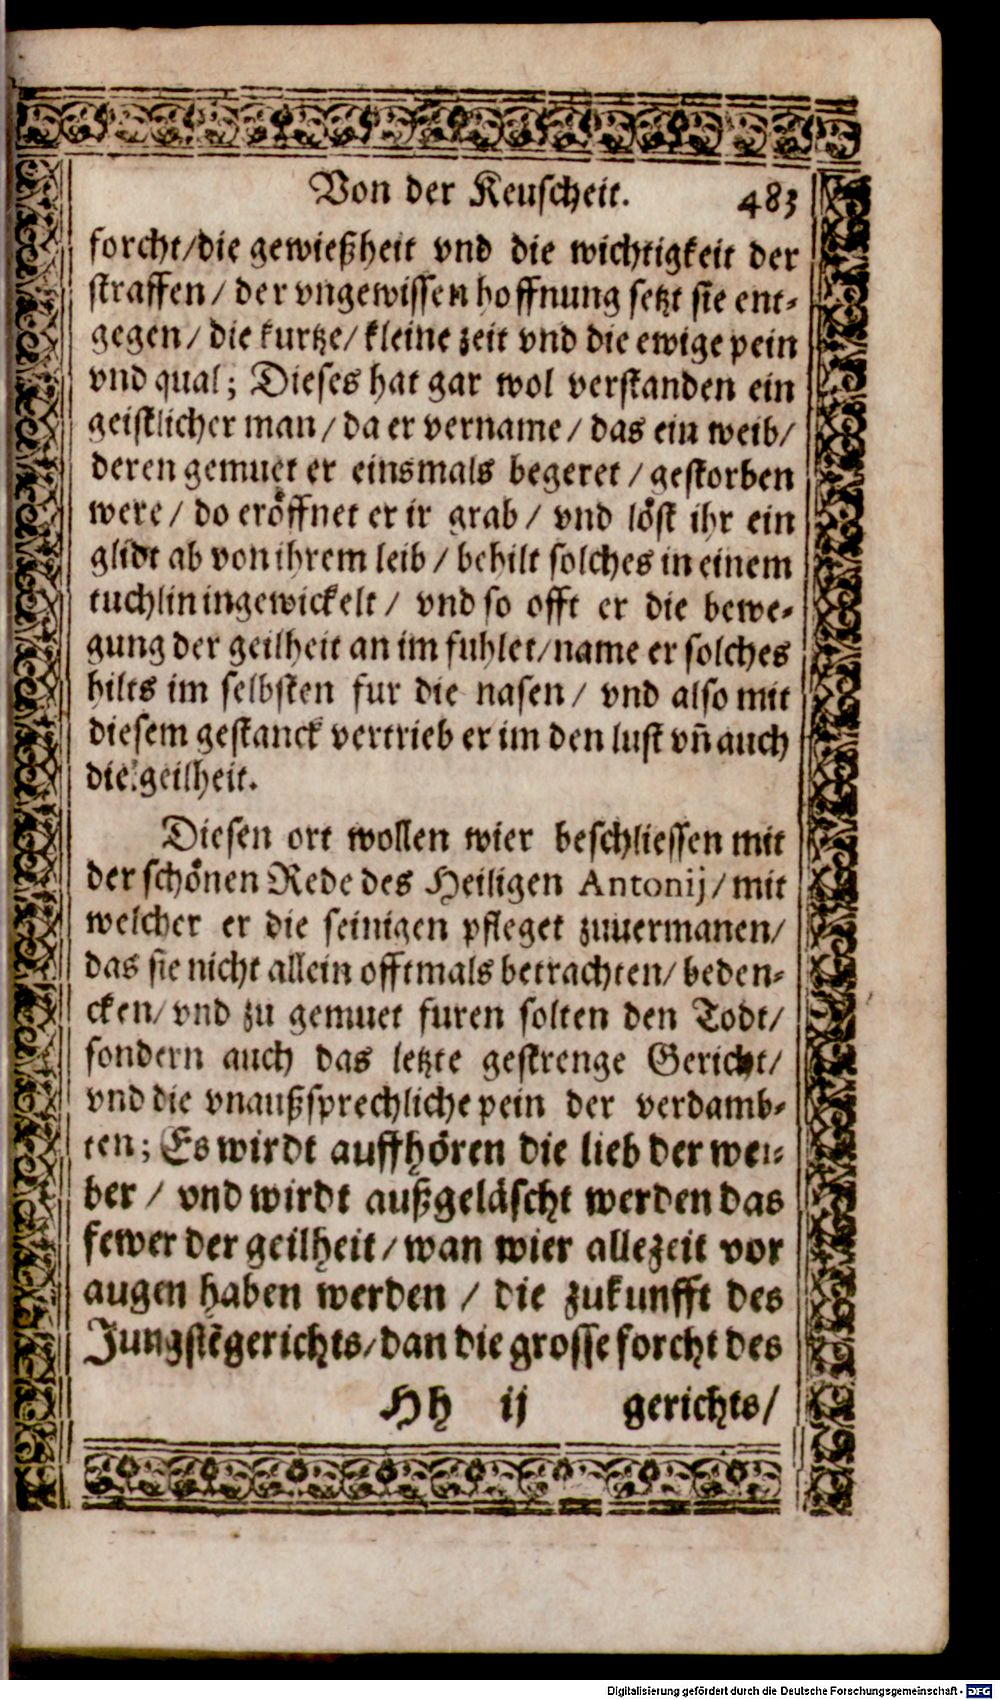 Von der Keuscheit. 483
forcht/die gewießheit vnd die wichtigkeit der
straffen/ der vngewissen hoffnung setzt sie ent-
gegen/ die kurtze/ kleine zeit vnd die ewige pein
vnd qual; Dieses hat gar wol verstanden ein
geistlicher man/ da er vername/ das ein weib/
deren gemuet er einsmals begeret/ gestorben
were/ do eröffnet er ir grab/ vnd löst ihr ein
glidt ab von ihrem leib/ behilt solches in einem
tuchlin ingewickelt/ vnd so offt er die bewe-
gung der geilheit an im fuhlet/name er solches
hilts im selbsten fur die nasen/ vnd also mit
diesem gestanck vertrieb er im den lust vñ auch
die geilheit.
Diesen ort wollen wier beschliessen mit
der schönen Rede des Heiligen Antonij/ mit
welcher er die seinigen pfleget zuuermanen/
das sie nicht allein offtmals betrachten/ beden-
cken/ vnd zu gemuet furen solten den Todt/
sondern auch das letzte gestrenge Gericht/
vnd die vnaußsprechliche pein der verdamb-
ten; Es wirdt auffhören die lieb der wei-
ber/ vnd wirdt außgeläscht werden das
fewer der geilheit/ wan wier allezeit vor
augen haben werden/ die zukunfft des
Jungstẽgerichts/dan die grosse forcht des
Hh ij gerichts/
Digitalisierung gefördert durch die Deutsche Forschungsgemeinschaft - DFG